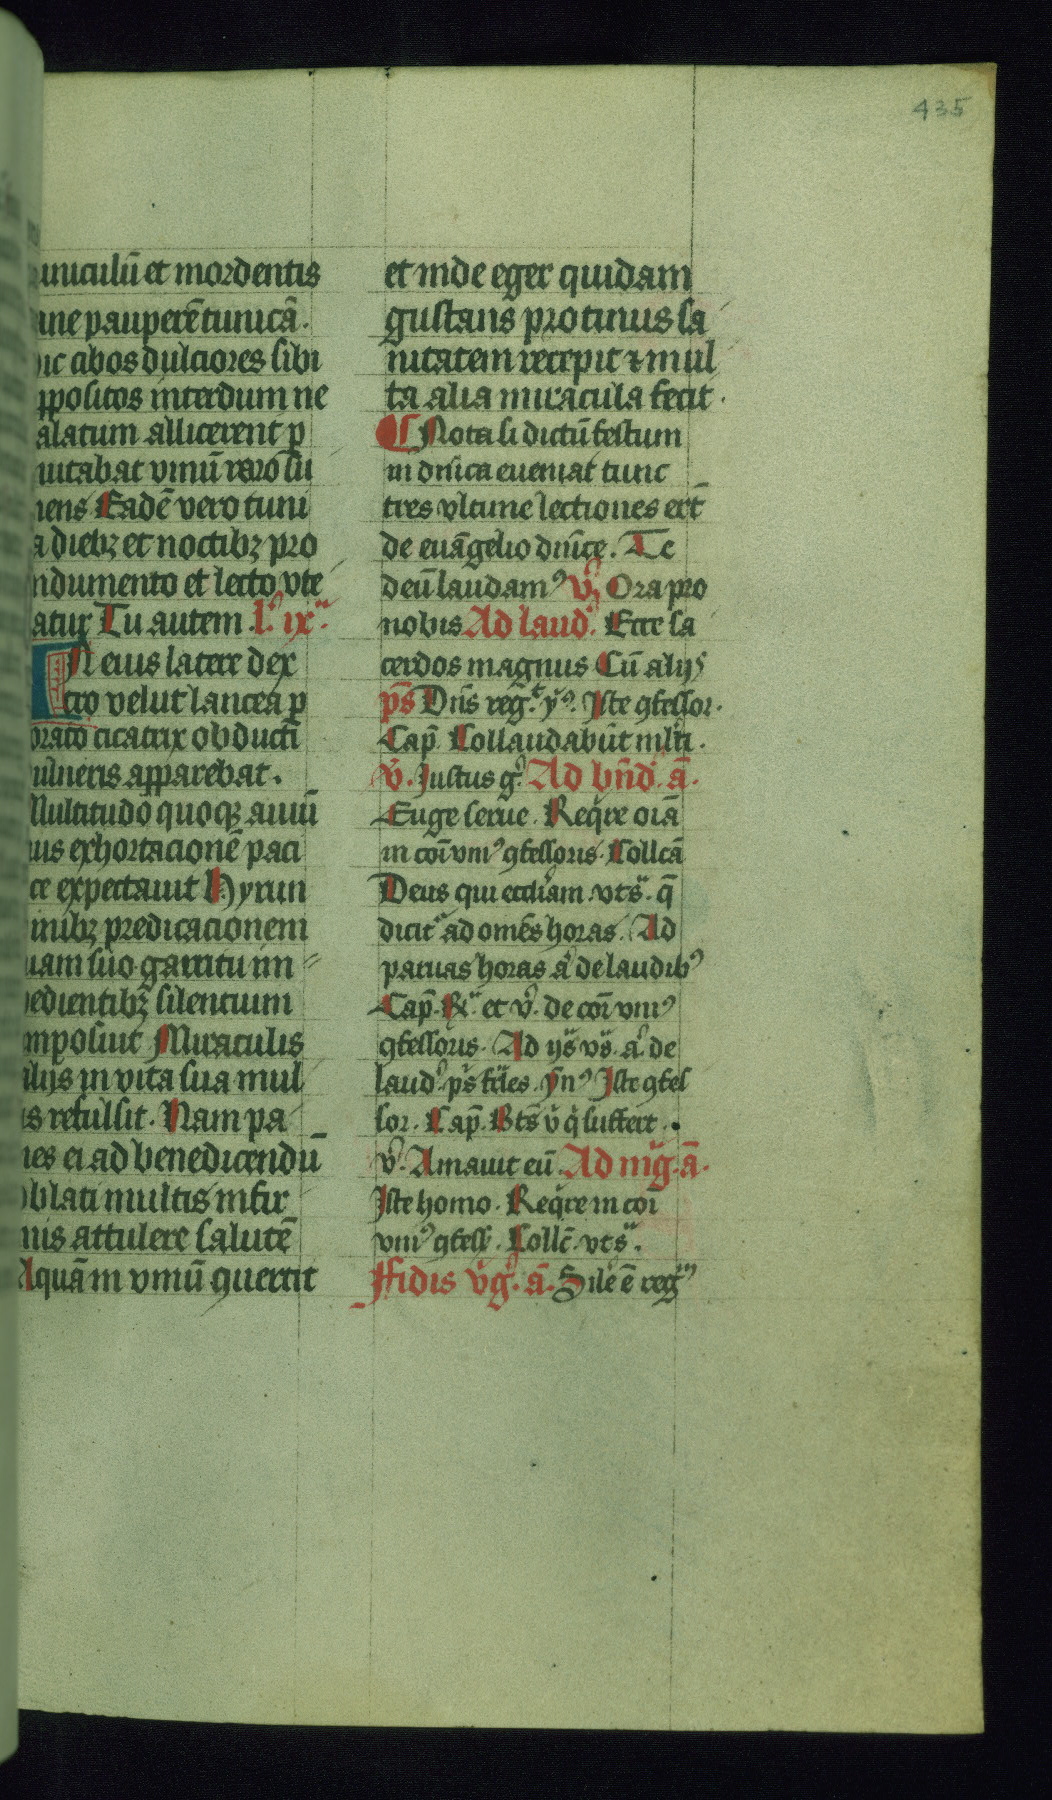 435
uniculū et mordentis
ane pauperē tunicā.
ic cibos dulciores sibi
ppositos interdum ne
alatum allicerent p
uitabat vinū raro su
iens Eadē vero tuni
a diebʒ et noctibʒ pro
ndumento et lecto vte
atur Tu autem. l. ix
IN eius latere dex
tro velut lancea p
orato cicatrix obducti
ulneris apparebat.
Multitudo quoqʒ auiū
ius exhortacionē paci
ce expectauit Hyrun
inibʒ predicacionem
uam suo garritu im
pedientibʒ silentium
imposuit Miraculis
alijs in vita sua mul
is refulsit. Nam pa
nes ei ad benedicendū
oblati multis infir
mis attulere salutē
Aquā in vinū quertit
et inde eger quidam
gustans protinus sa
nitatem recepit ⁊ mul
ta alia miracula fecit.
Nota si dictū festum
in dn̄ica eueniat tunc
tres vltime lectiones ert̄
de euāgelio dn̄ice. Te
deū laudamꝰ v̊ Ora pro
nobis Ad laud. Ecce sa
cerdos magnus Cū alijs
ps̄ Dn̄s reg. yꝰ. Iste ꝯfessor.
Cap̄ Collaudabūt mlti.
v̊. Iustus g. Ad bn̄d. ā.
Euge serue. Reqͥre oīa
in coī vniꝰ ꝯfessoris. Collcā
Deus qui eccliam. vts. q̄
dicit ad omēs horas. Ad
paruas horas ā de laudibꝰ
Cap̄. R et v̊. de coī vniꝰ
ꝯfessoris. Ad ijs vs. ā de
laud ps fēles. ynꝰ Iste ꝯfes
sor. Cap̄. Bts̄ v̊ qͥ suffert.
v̊. Amauit eū. Ad mg. ā.
Iste homo. Reqͥre in coī
vniꝰ ꝯfess. Collc̄. vts.
Ffidis v̊g. ā. Sile ē reg